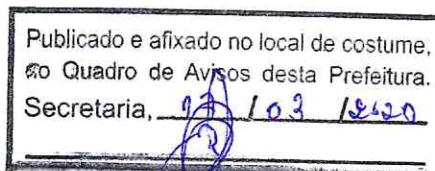 Publicado e afixado no local de costume,
no Quadro de Avisos desta Prefeitura.
Secretaria, / 03 / 2020